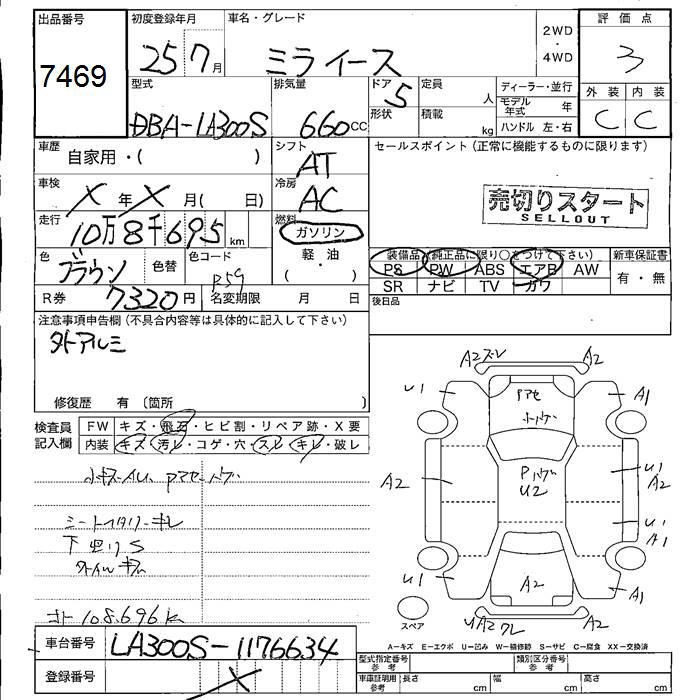 出品番号
7469
初度登録年月
25 7月
車名・グレード
ミライース
2WD
・
4WD
評価点
3
外装 内装
C C
型式
DBA-LA300S
排気量
660cc
ドア
5
形状
定員
人
積載
kg
ディーラー・並行
モデル年式 年
ハンドル 左・右
車歴
自家用・( )
シフト
AT
セールスポイント(正常に機能するものに限ります)
売切りスタート
SELLOUT
車検
X 年 X 月( 日)
冷房
AC
走行
10万8千695km
燃料
ガソリン
軽・油
( )
色
ブラウン
色替
色コード
R59
装備品(純正品に限り○をつけて下さい)
PS PW ABS エアB AW
SR ナビ TV カワ
新車保証書
有・無
R券
7320円
名変期限 月 日
後日品
注意事項申告欄(不具合内容等は具体的に記入して下さい)
外アルミ
修復歴 有(箇所 )
検査員記入欄
FW キズ・飛石・ヒビ割・リペア跡・X要
内装 キズ・汚レ・コゲ・穴・スレ・キレ・破レ
下廻りS
108.696k
A2ズレ A2
U1 A1
Pアセ
A2
U2
U1
A2
U1
A1
U1 A1
A2
スペア
UA2ワレ A2
A=キズ E=エクボ U=凹み W=補修跡 S=サビ C=腐食 XX=交換済
車台番号
LA300S-1176634
登録番号
X
型式指定番号
参考
類別区分番号
参考
車庫証明用
参考
長さ cm 幅 cm 高さ cm